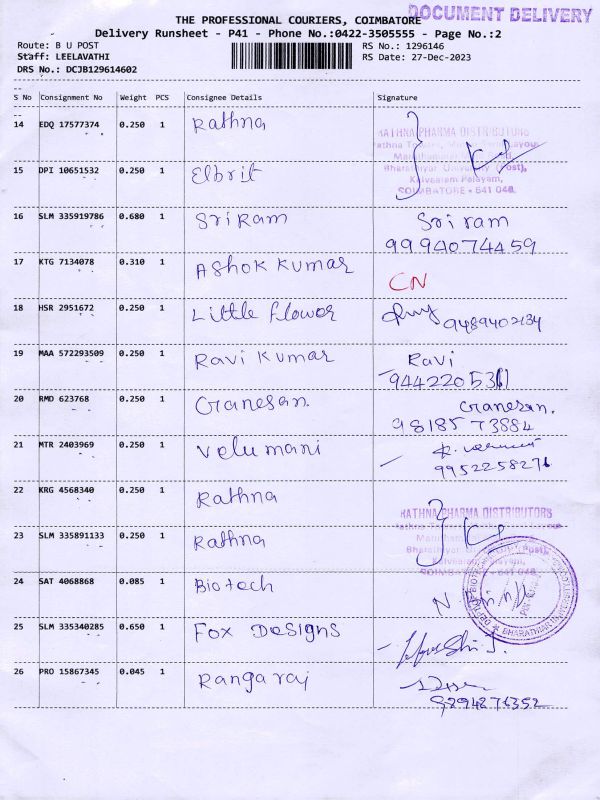 THE PROFESSIONAL COURIERS, COIMBATORE
DOCUMENT DELIVERY
Delivery Runsheet - P41 - Phone No.:0422-3505555 - Page No.:2
Route: B U POST
RS No.: 1296146
Staff: LEELAVATHI
RS Date: 27-Dec-2023
DRS No.: DCJB129614602
S No Consignment No Weight PCS Consignee Details Signature
14 EDQ 17577374 0.250 1 Rathna
RATHNA PHARMA DISTRIBUTORS
Bharathiyar University (Post),
Kalveeram Palayam,
COIMBATORE - 641 046.
15 DPI 10651532 0.250 1 Elbrit
16 SLM 335919786 0.680 1 Sri Ram Sri ram
9994074459
17 KTG 7134078 0.310 1 Ashok Kumar CN
18 HSR 2951672 0.250 1 Little flower 9489402134
19 MAA 572293509 0.250 1 Ravi Kumar Ravi
9442205311
20 RMD 623768 0.250 1 Ganesan. Ganesan.
9818573884
21 MTR 2403969 0.250 1 Velumani
9952258271
22 KRG 4568340 0.250 1 Rathna
RATHNA PHARMA DISTRIBUTORS
23 SLM 335891133 0.250 1 Rathna
COIMBATORE - 641 046
24 SAT 4068868 0.085 1 Biotech
25 SLM 335340285 0.650 1 Fox Designs
26 PRO 15867345 0.045 1 Ranga raj
9894876352